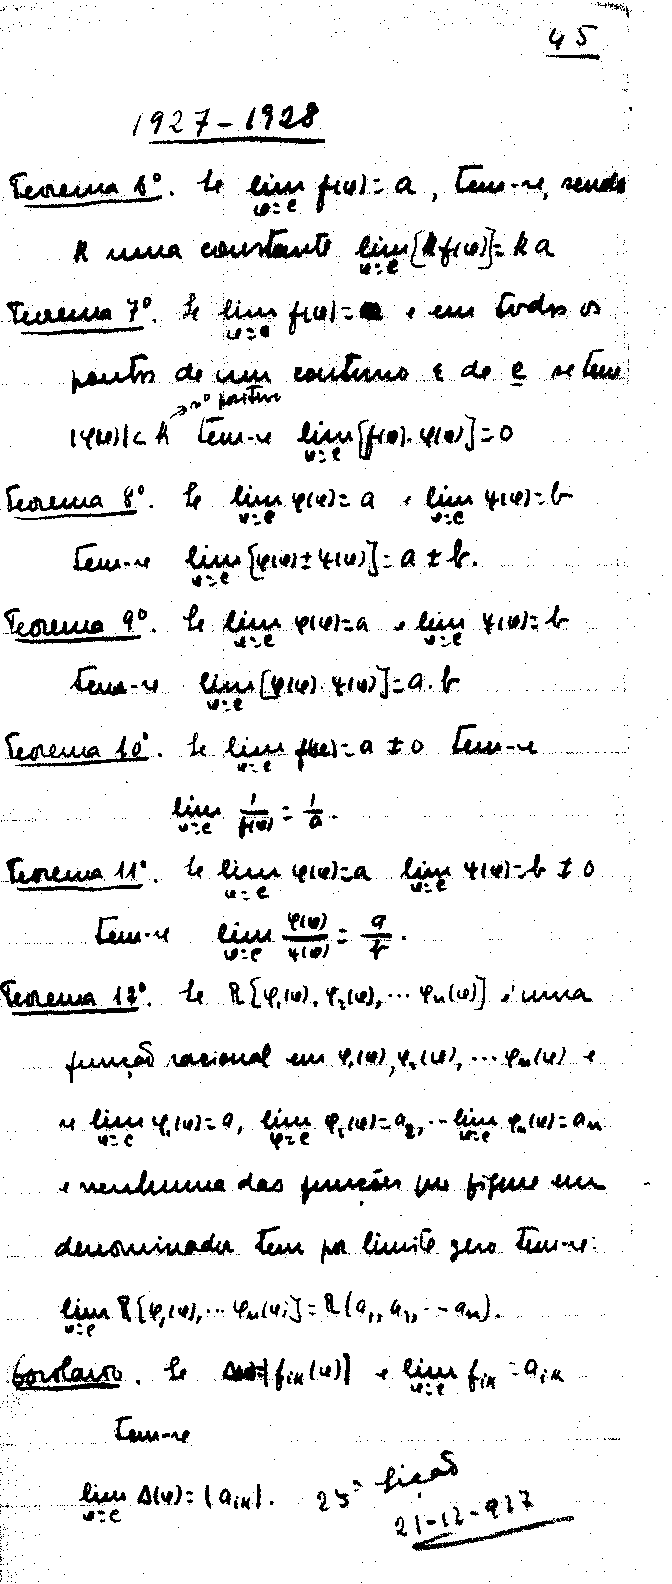 45
1927-1928
Teorema 6º. Se lim f(u)=a, tem-se, sendo
u=c
k uma constante lim [k f(u)]=k a
u=c
Teorema 7º. Se lim f(u)= e em todos os
u=c
pontos de um contorno ε de c se tem
→ nº positivo
|φ(u)|< k tem-se lim [f(u).φ(u)]=0
u=c
Teorema 8º. Se lim φ(u)=a e lim ψ(u)=b
u=c u=c
tem-se lim [φ(u)±ψ(u)]=a±b.
u=c
Teorema 9º. Se lim φ(u)=a e lim ψ(u)=b
u=c u=c
tem-se lim [φ(u).ψ(u)]=a.b
u=c
Teorema 10º. Se lim f(u)=a≠0 tem-se
u=c
lim 1/f(u) = 1/a.
u=c
Teorema 11º. Se lim φ(u)=a lim ψ(u)=b≠0
u=c u=c
tem-se lim φ(u)/ψ(u) = a/b.
u=c
Teorema 12º. Se R[φ₁(u), φ₂(u), ... φₙ(u)] é uma
função racional em φ₁(u), φ₂(u), ... φₙ(u) e
se lim φ₁(u)=a₁ lim φ₂(u)=a₂, ... lim φₙ(u)=aₙ
u=c u=c u=c
e nenhuma das funções que figure em
denominador tem por limite zero tem-se:
lim R[φ₁(u), ... φₙ(u)]=R(a₁, a₂, ... aₙ).
u=c
Corolario. Se |fᵢₖ(u)| e lim fᵢₖ=aᵢₖ
u=c
tem-se
lim Δ(u)=|aᵢₖ|. 25ª lição
u=c
21-12-927